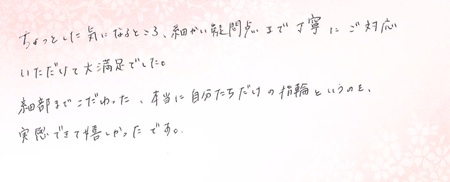 ちょっとした気になるところ、細かい疑問点まで丁寧にご対応
いただけて大満足でした。
細部までこだわった、本当に自分たちだけの指輪というのを、
実感できて嬉しかったです。